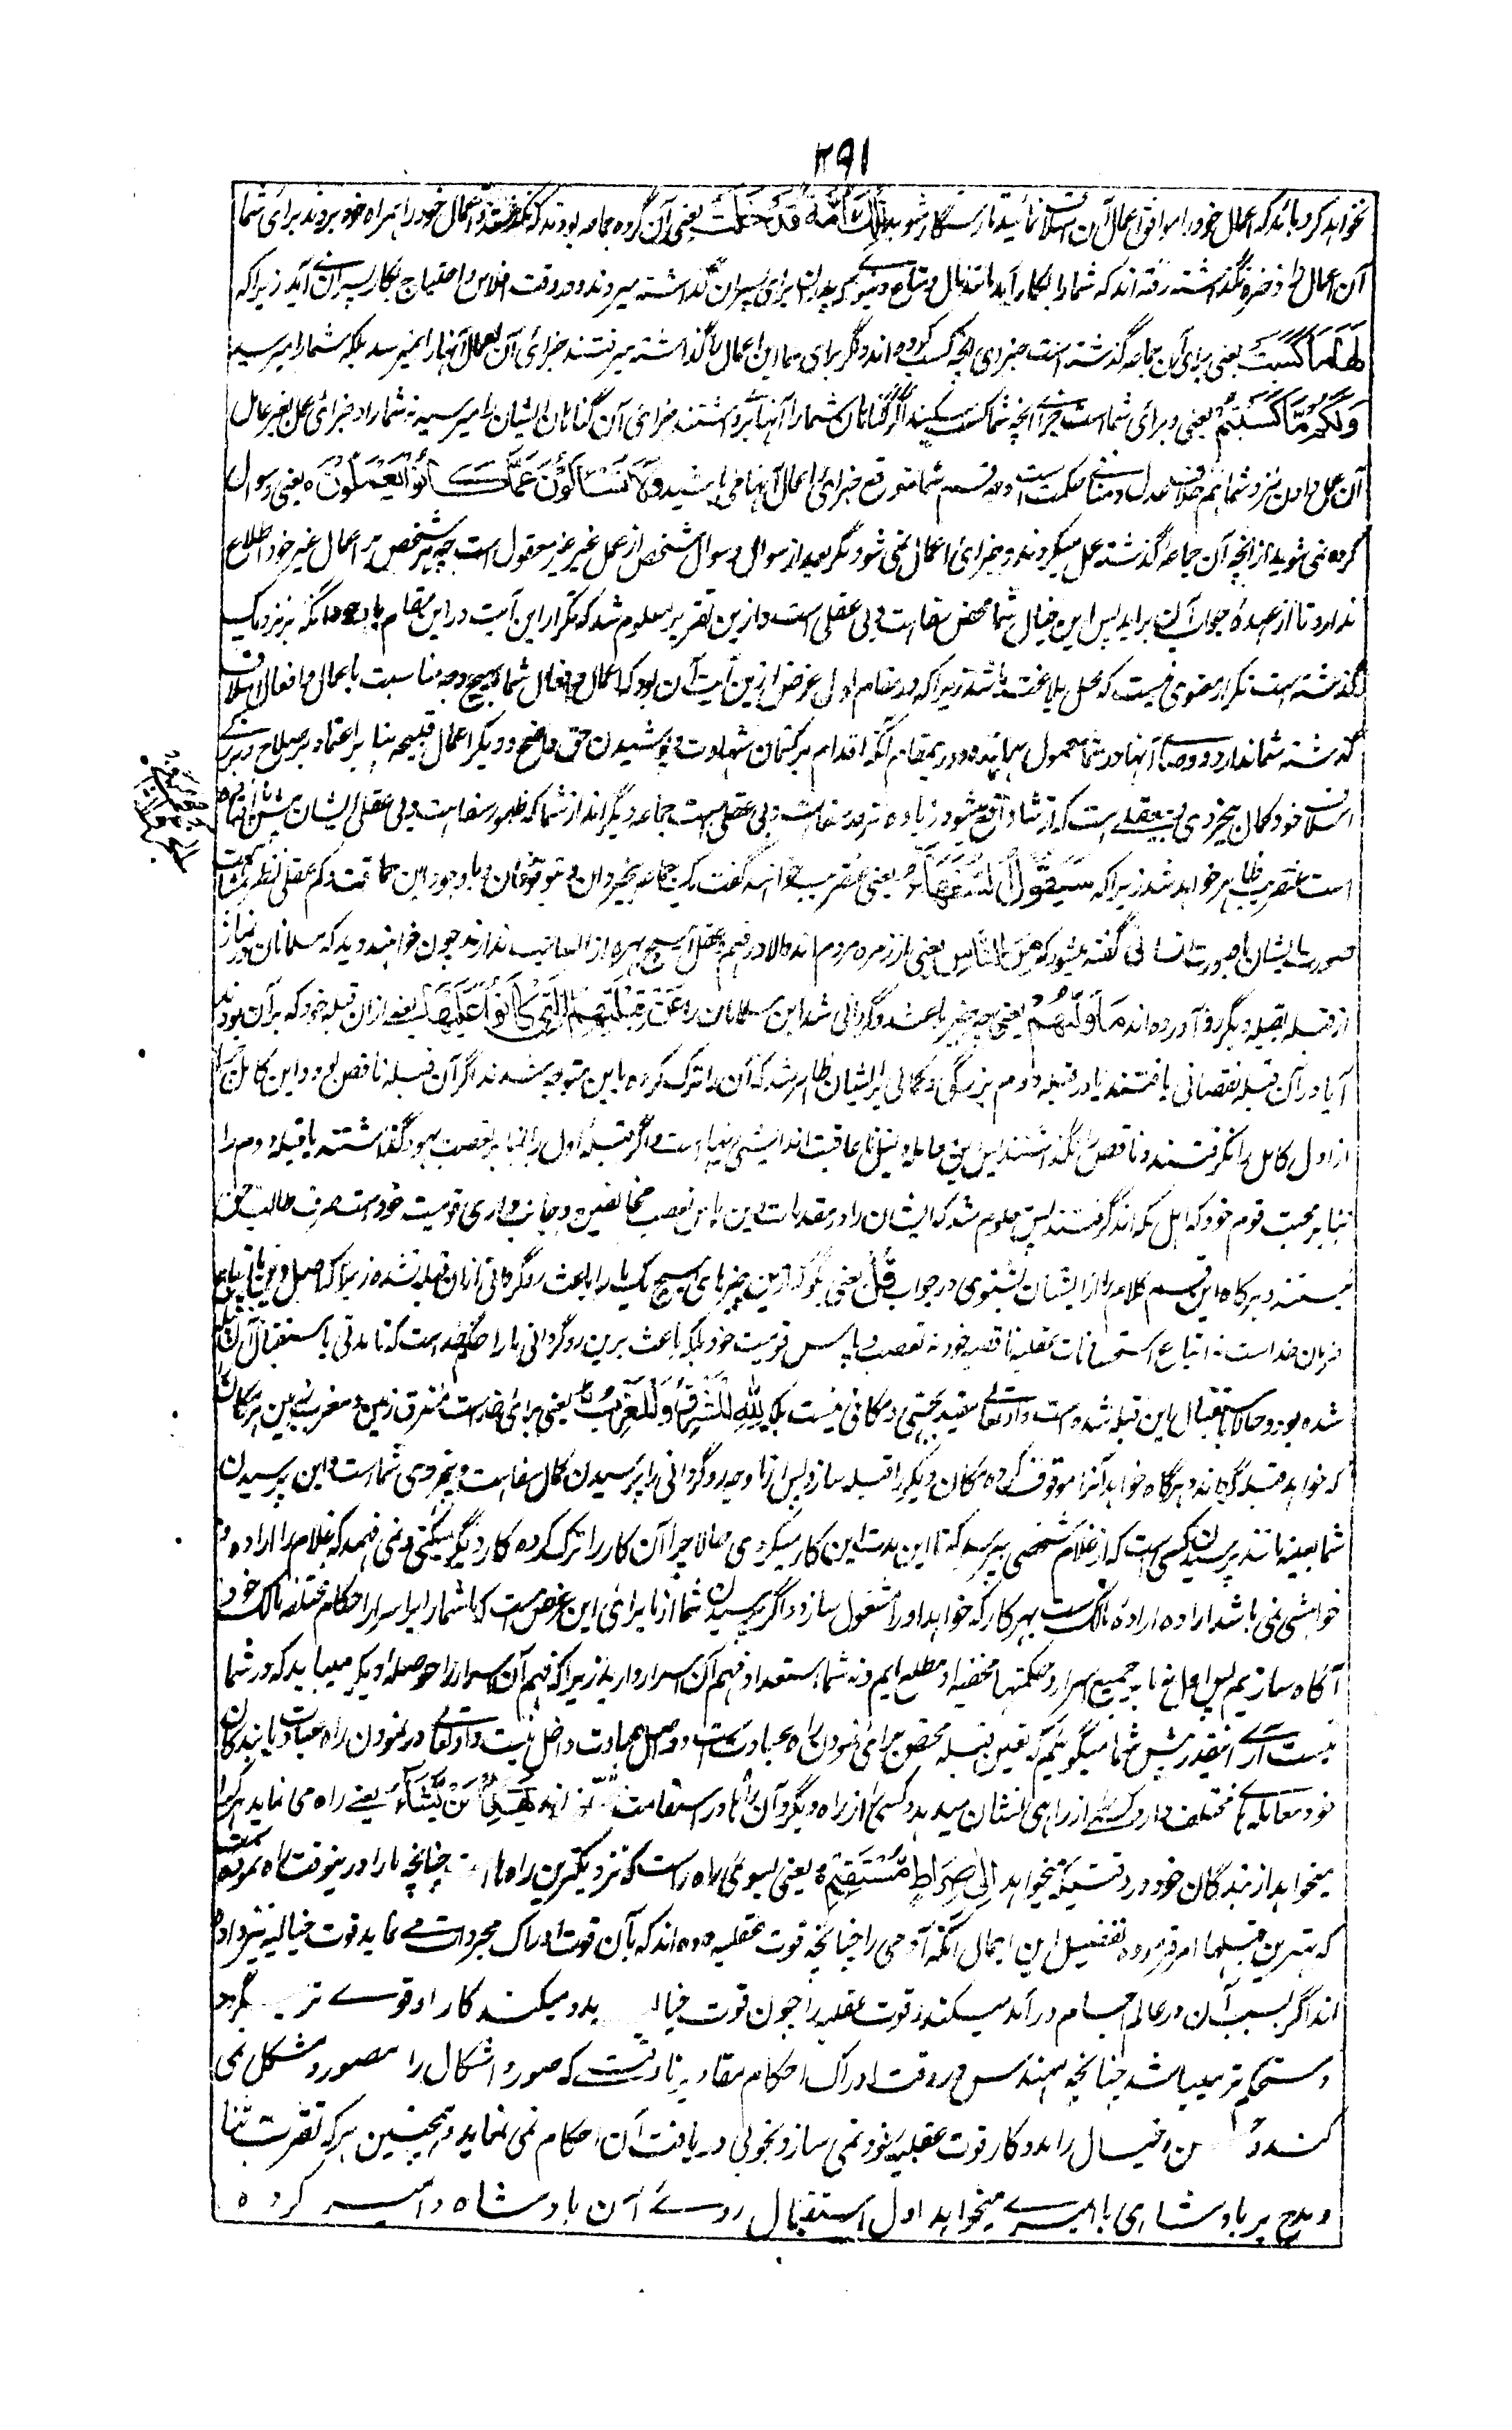 ۲۹۱
نخواهد کرد باید که اعمال خود را موافق اعمال آن اسلاف نمائید تا رستگار شوید تِلْكَ أُمَّةٌ قَدْ خَلَتْ یعنی آن گروه جماعه بودند که گذشتند و اعمال خود را همراه خود بردند برای شما
آن اعمال را ذخیره نگذاشته رفته اند که شما را بکار آید مانند مال و متاع دنیوی که پدران برای پسران گذاشته میروند و در وقت افلاس و احتیاج بکار پسران می آید زیرا که
لَهَا مَا كَسَبَتْ یعنی برای آن جماعه گذشته است جزای آنچه کسب کرده اند و گر برای شما این اعمال را گذاشته میرفتند جزای آن اعمال آنها را نمیرسد بلکه شما را میرسید
وَلَكُمْ مَّا كَسَبْتُمْ یعنی و برای شما است جزای آنچه شما کسب میکنید اگر گناهان شما را آنها برداشتند جزای آن گناهان ایشان را میرسید نه شما را و جزای عمل بغیر عامل
آن عمل دادن نزد شما هم خلاف عدل و منافی حکمت است و چه قسم شما متوقع جزای اعمال آنها می باشید وَلَا تُسْأَلُونَ عَمَّا كَانُوا يَعْمَلُونَ ه یعنی و سوال
کرده نمی شوید از آنچه آن جماعه گذشته عمل میکردند و جزای اعمال نمی شود مگر بعد از سوال و سوال شخص از عمل غیر غیر معقول است چه هر شخص بر اعمال غیر خود اطلاع
ندارد تا از عهدهٔ جواب آن برآید پس این خیال شما محض سفاهت و بی عقلی است و ازین تقریر معلوم شد که تکرار این آیت در این مقام با وجود آنکه نزدیک
گذشته است تکرار معنوی نیست که مخل بلاغت باشد زیرا که در مقام اول غرض ازین آیت آن بود که اعمال و افعال شما بهیچ وجه مناسبت با اعمال و افعال اسلاف
گذشته شما ندارد و وصایای آنها در شما معمول بها نمانده و در ینمقام آنکه اقدام بر کتمان شهادت و پوشیدن حق واضح و دیگر اعمال قبیحه بنا بر اعتماد بر صلاح و بزرگی
اسلاف خود کمال بیخردی و بیعقلی است که از شما واقع میشود زیاده تر در سفاهت و بی عقلی جماعه دیگر اند از شما که ظهور سفاهت و بی عقلی ایشان
است عنقریب ظاهر خواهد شد زیرا که سَيَقُولُ السُّفَهَاءُ یعنی عنقریب خواهند گفت یک جماعه بیخردان و بیوقوفان و با وجود این حماقت و کم عقلی نظر
صورت ایشان با صورت انسانی گفته میشود که مِنَ النَّاسِ یعنی از زمره مردم اند و الا در فهم و عقل هیچ بهره از انسانیت ندارند چون خواهند دید که مسلمانان در نماز
از قبله بقبله دیگر رو آورده اند مَا وَلَّاهُمْ یعنی چه چیز باعث روگردانی شد این مسلمانان را عَنْ قِبْلَتِهِمُ الَّتِي كَانُوا عَلَيْهَا یعنی از ان قبله خود که بر آن بودند
آیا در آن قبله نقصانی یافتند یا در قبله دوم بزرگی و کمالی بر ایشان ظاهر شد که آن را ترک کرده باین متوجه شدند اگر آن قبله ناقص بود و این کامل چرا
از اول کامل را نگرفتند و ناقص را نگذاشتند عاقبت اندیشی اینها است و اگر قبله اول را بنابر تعصب یهود گذاشتند یا قبله دوم را
بنابر محبت قوم خود که اهل مکه اند گرفتند پس معلوم شد که ایشان را در مقدمات دین پاس تعصب مخالفین و جانب داری قومیت خود است صرف طالب حق
نیستند و هرگاه این قسم کلام را از ایشان بشنوی در جواب قُلْ یعنی بگو که ازین چیزهای هیچ یک ما را باعث روگردانی از ان قبله نشده زیرا که اصل دین ما اتباع
فرمان خداست نه اتباع استحسانات عقلیه ناقصه خود نه تعصب و پاس قومیت خود بلکه باعث برین روگردانی ما را حکم خداست که تا مدتی با استقبال آن قبله
شده بود و حالا باستقبال این قبله شده است و او تعالی مقید بجهتی و مکانی نیست بلکه لِلَّهِ الْمَشْرِقُ وَالْمَغْرِبُ یعنی برای خداست مشرق زمین و مغرب زمین هر مکان
که خواهد قبله گرداند و هرگاه خواهد آنرا موقوف کرده مکان دیگر را قبله سازد پس از ما وجه روگردانی را پرسیدن کمال سفاهت و بیخردی شما است و این پرسیدن
شما بعینه مانند پرسیدن کسی است که از غلام شخصی بپرسد که تا این مدت این کار میکردی حالا چرا آن کار را ترک کرده کار دیگر میکنی و نمی فهمد که غلام را اراده و
خواهشی نمی باشد اراده ارادهٔ مالک است بهر کار که خواهد او را مشغول سازد و اگر پرسیدن شما از ما برای این غرض است که ما شما را بر اسرار احکام مختلفه مالک خود
آگاه سازیم پس اول نه ما بر جمیع اسرار و حکمتها مخفیه او مطلع ایم و نه شما استعداد فهم آن اسرار دارید زیرا که فهم آن اسرار را حوصله دیگر میباید که در شما
نیست آری اینقدر پیش شما میگوئیم که تعیین قبله محض برای نمودن راه عبادت است و در اصل عبادت داخل نیست و او تعالی در نمودن راه عبادت با بندگان
خود معامله های مختلف دارد کسی را از راهی نشان میدهد و کسی را از راه دیگر و آن راهها در استقامت يَهْدِي مَنْ يَشَاءُ یعنی راه می نماید هر کرا
میخواهد از بندگان خود در وقتیکه میخواهد إِلَىٰ صِرَاطٍ مُّسْتَقِيمٍ ه یعنی بسوی راه راست که نزدیکترین راه ها است چنانچه ما را درینوقت
که بهترین قبلها امر فرموده تفصیل این اجمال آنکه آدمی را چنانچه قوت عقلیه داده اند که بآن قوت ادراک مجردات می نماید قوت خیالیه نیز داده
اند اگر بسبب آن در عالم اجسام درآمد میکند و قوت عقلیه را چون قوت خیالیه مدد میکند کار او قوی تر میگردد
و مستحکم تر میباشد چنانچه مهندس در وقت ادراک احکام مقادیر تا وقتیکه صور و اشکال را مصور و مشکل نمی
کند و خیال را مدد کار قوت عقلیه خود نمی سازد بخوبی دریافت آن احکام نمی نماید و همچنین هر که تقرب ثنا
و مدح بر بادشاهی یا امیری میخواهد اول استقبال روی آن بادشاه و امیر کرده